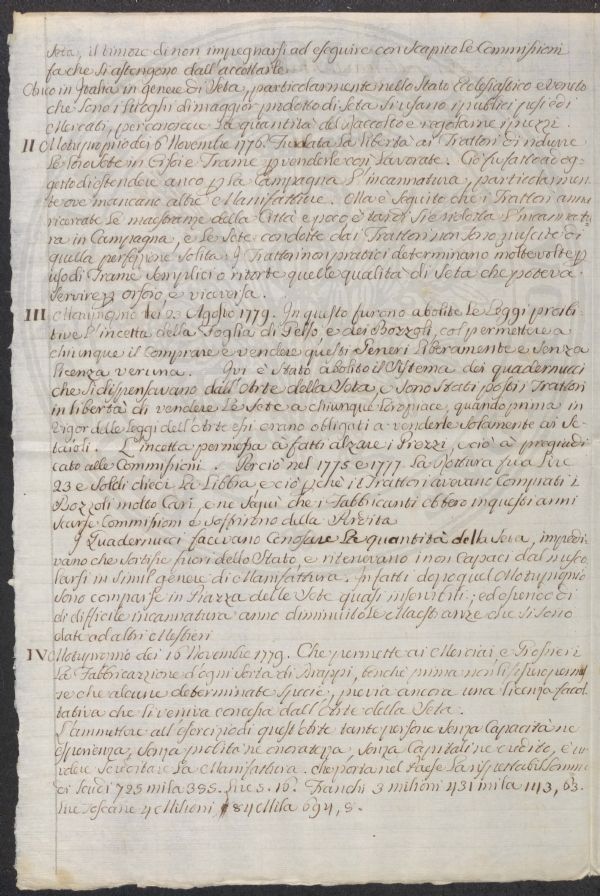 Seta, il timore di non impegnarsi ad eseguire con Scapito le Commissioni
fa che Si astengono dall'accettarle
in Italia in genere di Seta, particolarmente nello Stato Ecclesiastico e Veneto
che Sono i Luoghi di maggior prodotto di Seta Si usano i publici pesi ed i
Mercati, per conoscere La quantità del Raccolto e regolarne i prezzi.
II Motuproprio dei 6 Novembre 1776. Fu data La libertà ai Trattori di ridurre
Le loro Sete in Orsoi e Trame p venderle così Lavorate. Ciò fu fatto ad og-
getto di estendere anco p La Campagna L'incannatura, particolarmen
te ove mancano altre Manifatture. Ma è Seguito che i Trattori anno
ricercate Le maestranze della Città e poco e tardi Si è estesa L'incannatu
ra in Campagna, e Le Sete condotte dai Trattori non Sono riuscite di
quella perfezione Solita. I Trattori non pratici determinano molte volte p
uso di Trame Semplici o ritorte quelle qualità di Seta che poteva
Servire p orsoio, e viaversa.
III Motuproprio dei 23 Agosto 1779. In questo furono abolite Le Leggi proibi-
tive L'incetta della Foglia di Gelso, e dei Bozzoli, col permettere a
chiunque il Comprare e vendere questi Generi Liberamente e Senza
licenza veruna. Qui è Stato abolito il Sistema dei quadernucci
che Si dispensavano dall'Arte della Seta, e Sono Stati posti i Trattori
in libertà di vendere Le Sete a chiunque Loro piace, quando prima in
vigor delle Leggi dell'Arte essi erano obligati a venderle Solamente ai Se-
taioli. L'incetta permessa à fatti alzare i Prezzi, e ciò à pregiudi
cato alle Commissioni. Perciò nel 1775 e 1777 La Rottura fu a Lire
23 e Soldi dieci La Libbra e ciò p chè i Trattori avevano Comprati i
Bozzoli molto Cari, e ne Seguì che i Fabbricanti ebbero in questi anni
Scarse Commissioni e Soffrirno della Perdita
I Quadernucci facevano Conoscere La quantità della Seta, impedi-
vano che Sortisse fuori dello Stato, e ritenevano i non Capaci dal mesco
larsi in Simil genere di Manifattura. Infatti dopo quel Motuproprio
Sono comparse in Piazza delle Sete quasi inservibili; ed essendo di
di difficile incannatura anno diminuito Le Maestranze che Si Sono
date ad altri Mestieri
IV Motuproprio dei 16 Novembre 1779. Che permette ai Merciai e
La Fabbricazzione d'ogni Sorta di Drappi, benchè prima non li Si
se che alcune determinate Specie, previa ancora una licenza facol
tativa che li veniva concessa dall'Arte della Seta.
L'ammettere all'esercizio di quest'Arte tante persone Senza Capacità ne
esperienza, Senza probità ne onoratezza, Senza Capitali ne credito, è un
voler Screditare La Manifattura. che porta nel Paese La rispettabil Somma
di Scudi 785 mila 385. Lire 5. 16. Franchi 3 milioni 431 mila 143, 63.
Lire Toscane 4 Milioni, 84 Mila 694, 8.